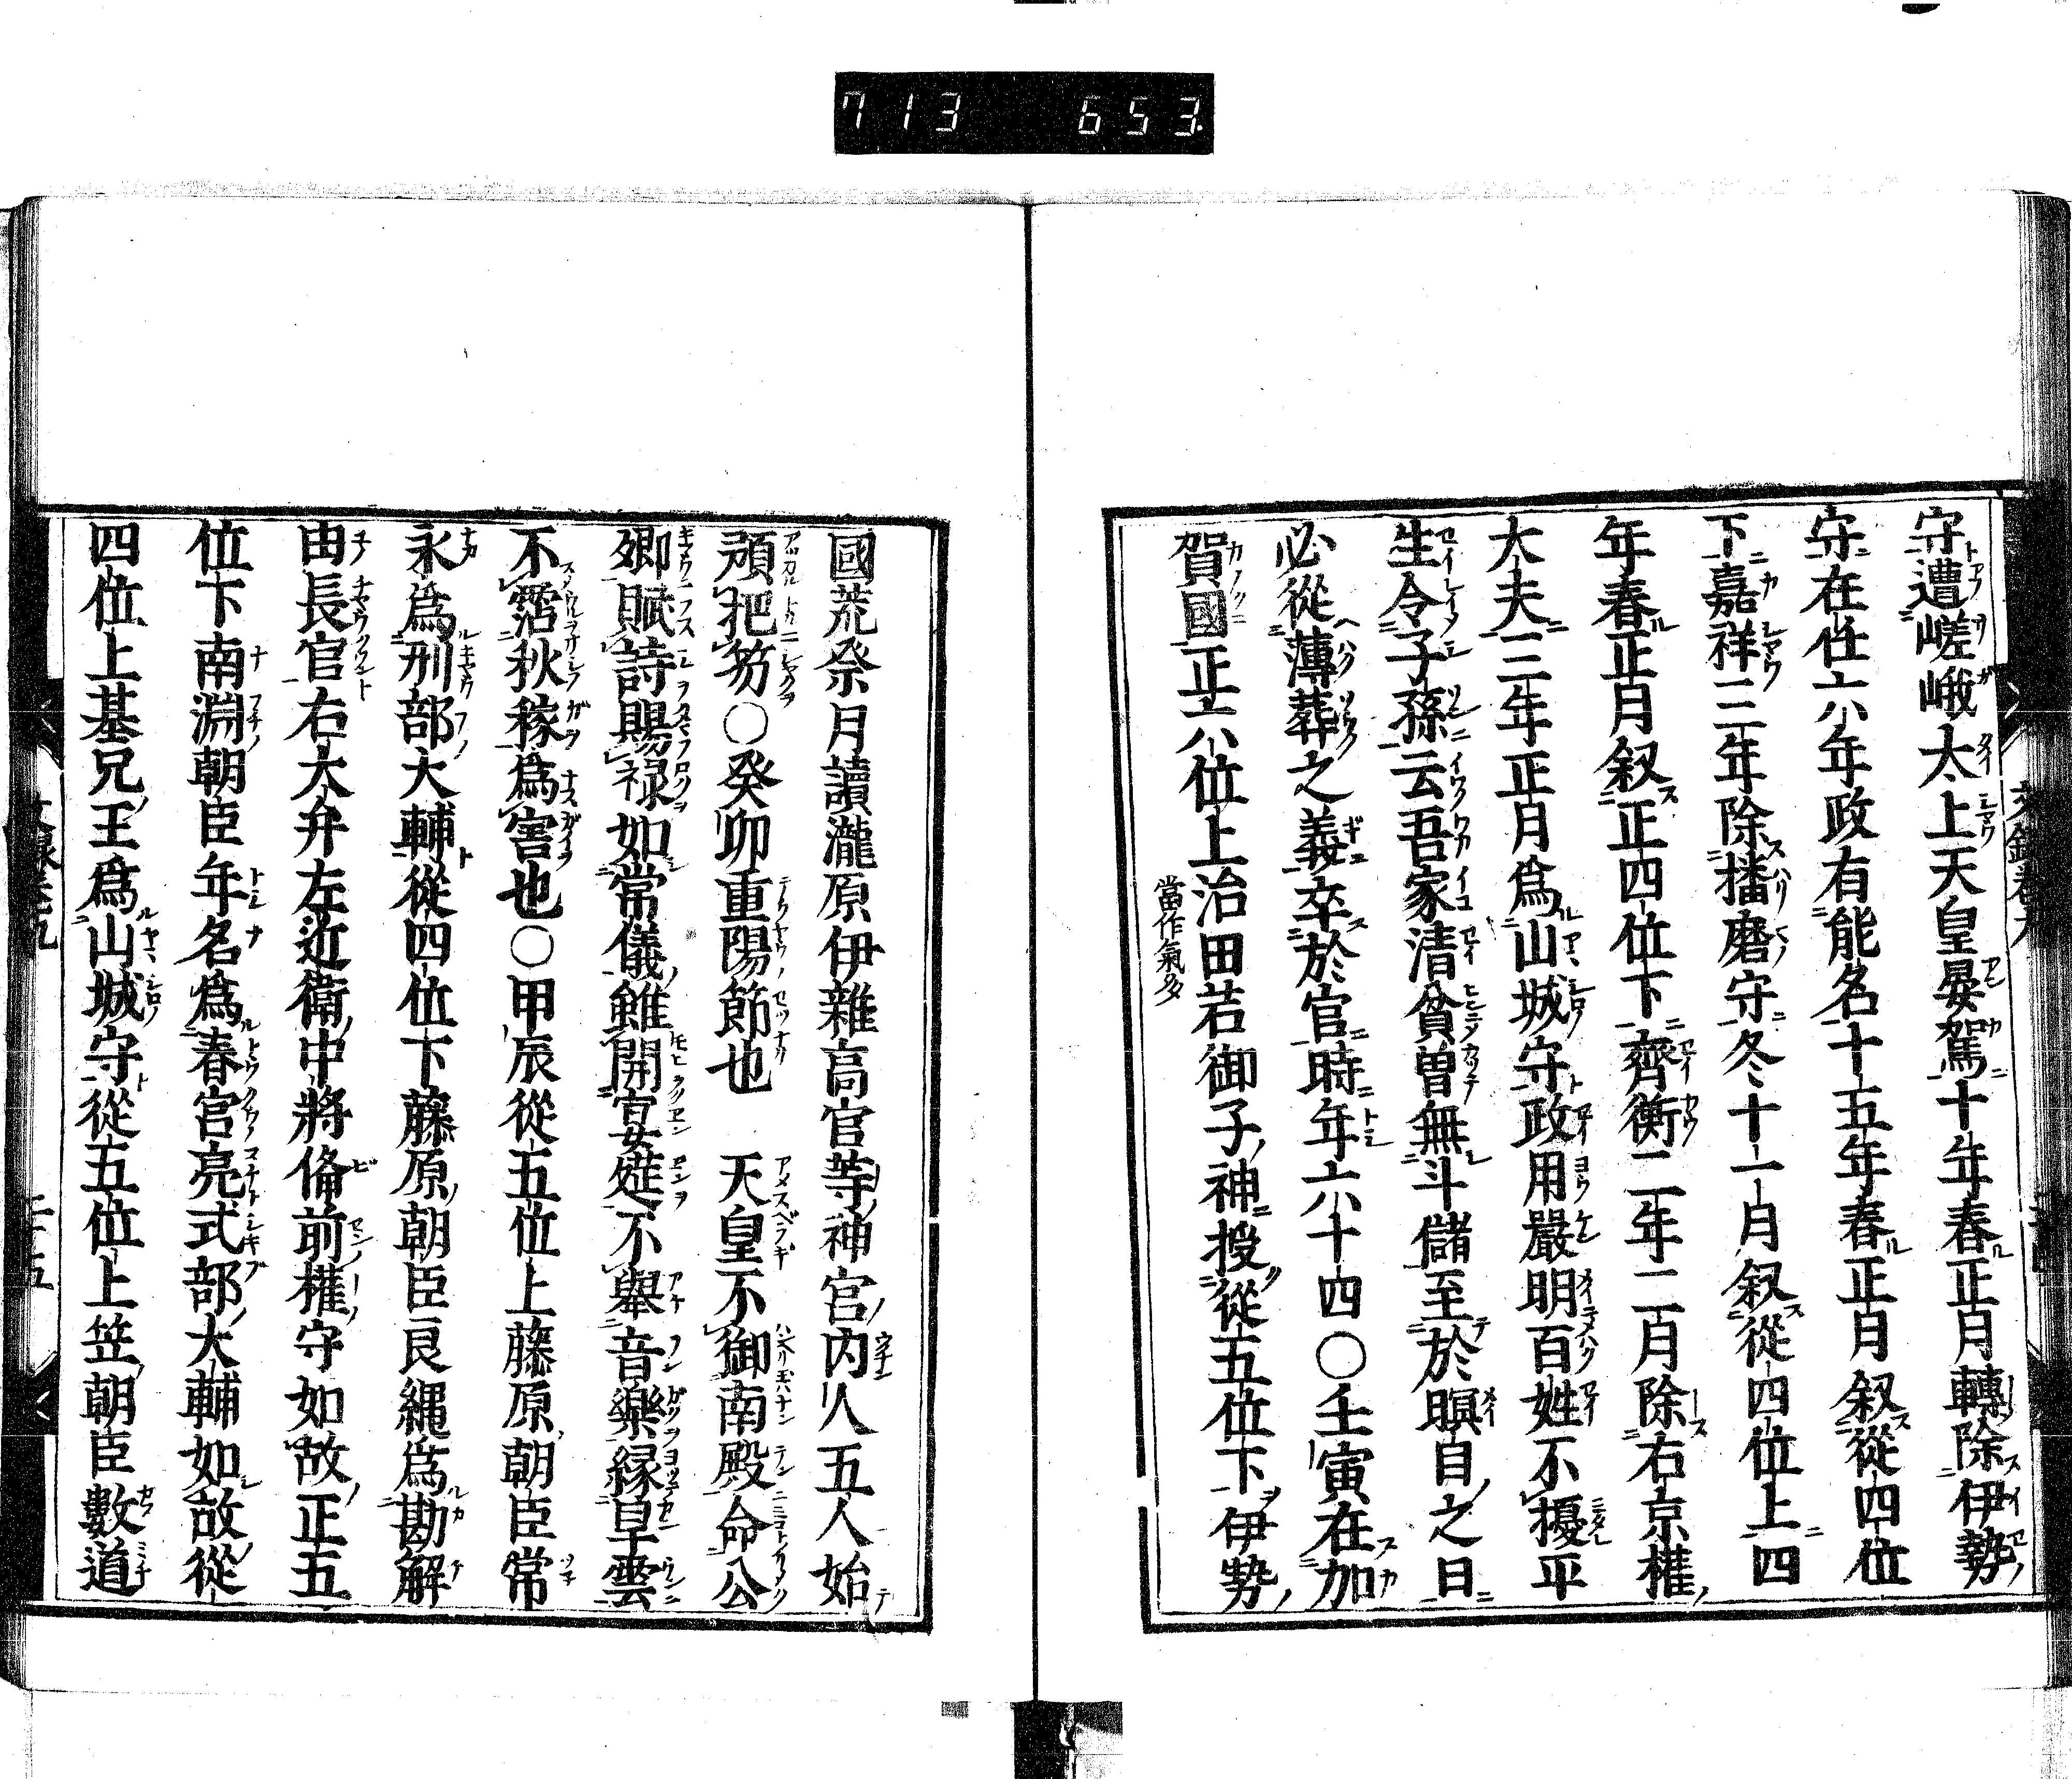 713 653
守遭嵯峨太上天皇晏駕十年春正月轉除伊勢
守在任六年政有能名十五年春正月叙從四位
下嘉祥三年除播磨守冬十一月叙從四位上四
年春正月叙正四位下齊衡二年二月除右京權
大夫三年正月為山城守政用嚴明百姓不擾平
生令子孫云吾家清貧曽無斗儲至於瞑目之日
必從薄葬之義卒於官時年六十四〇壬寅在加
賀國正六位上治田若御子神授從五位下伊勢
當作氣多
國荒祭月讀瀧原伊雜高宮等神宮内人五人始
預把笏〇癸卯重陽節也 天皇不御南殿命公
卿賦詩賜禄如常儀雖開宴莚不擧音樂縁旱雲
不霑秋稼為害也〇甲辰從五位上藤原朝臣常
永為刑部大輔從四位下藤原朝臣良縄為勘解
由長官右大弁左近衛中將偹前權守如故正五
位下南淵朝臣年名為春宮亮式部大輔如故從
四位上基兄王為山城守從五位上笠朝臣數道